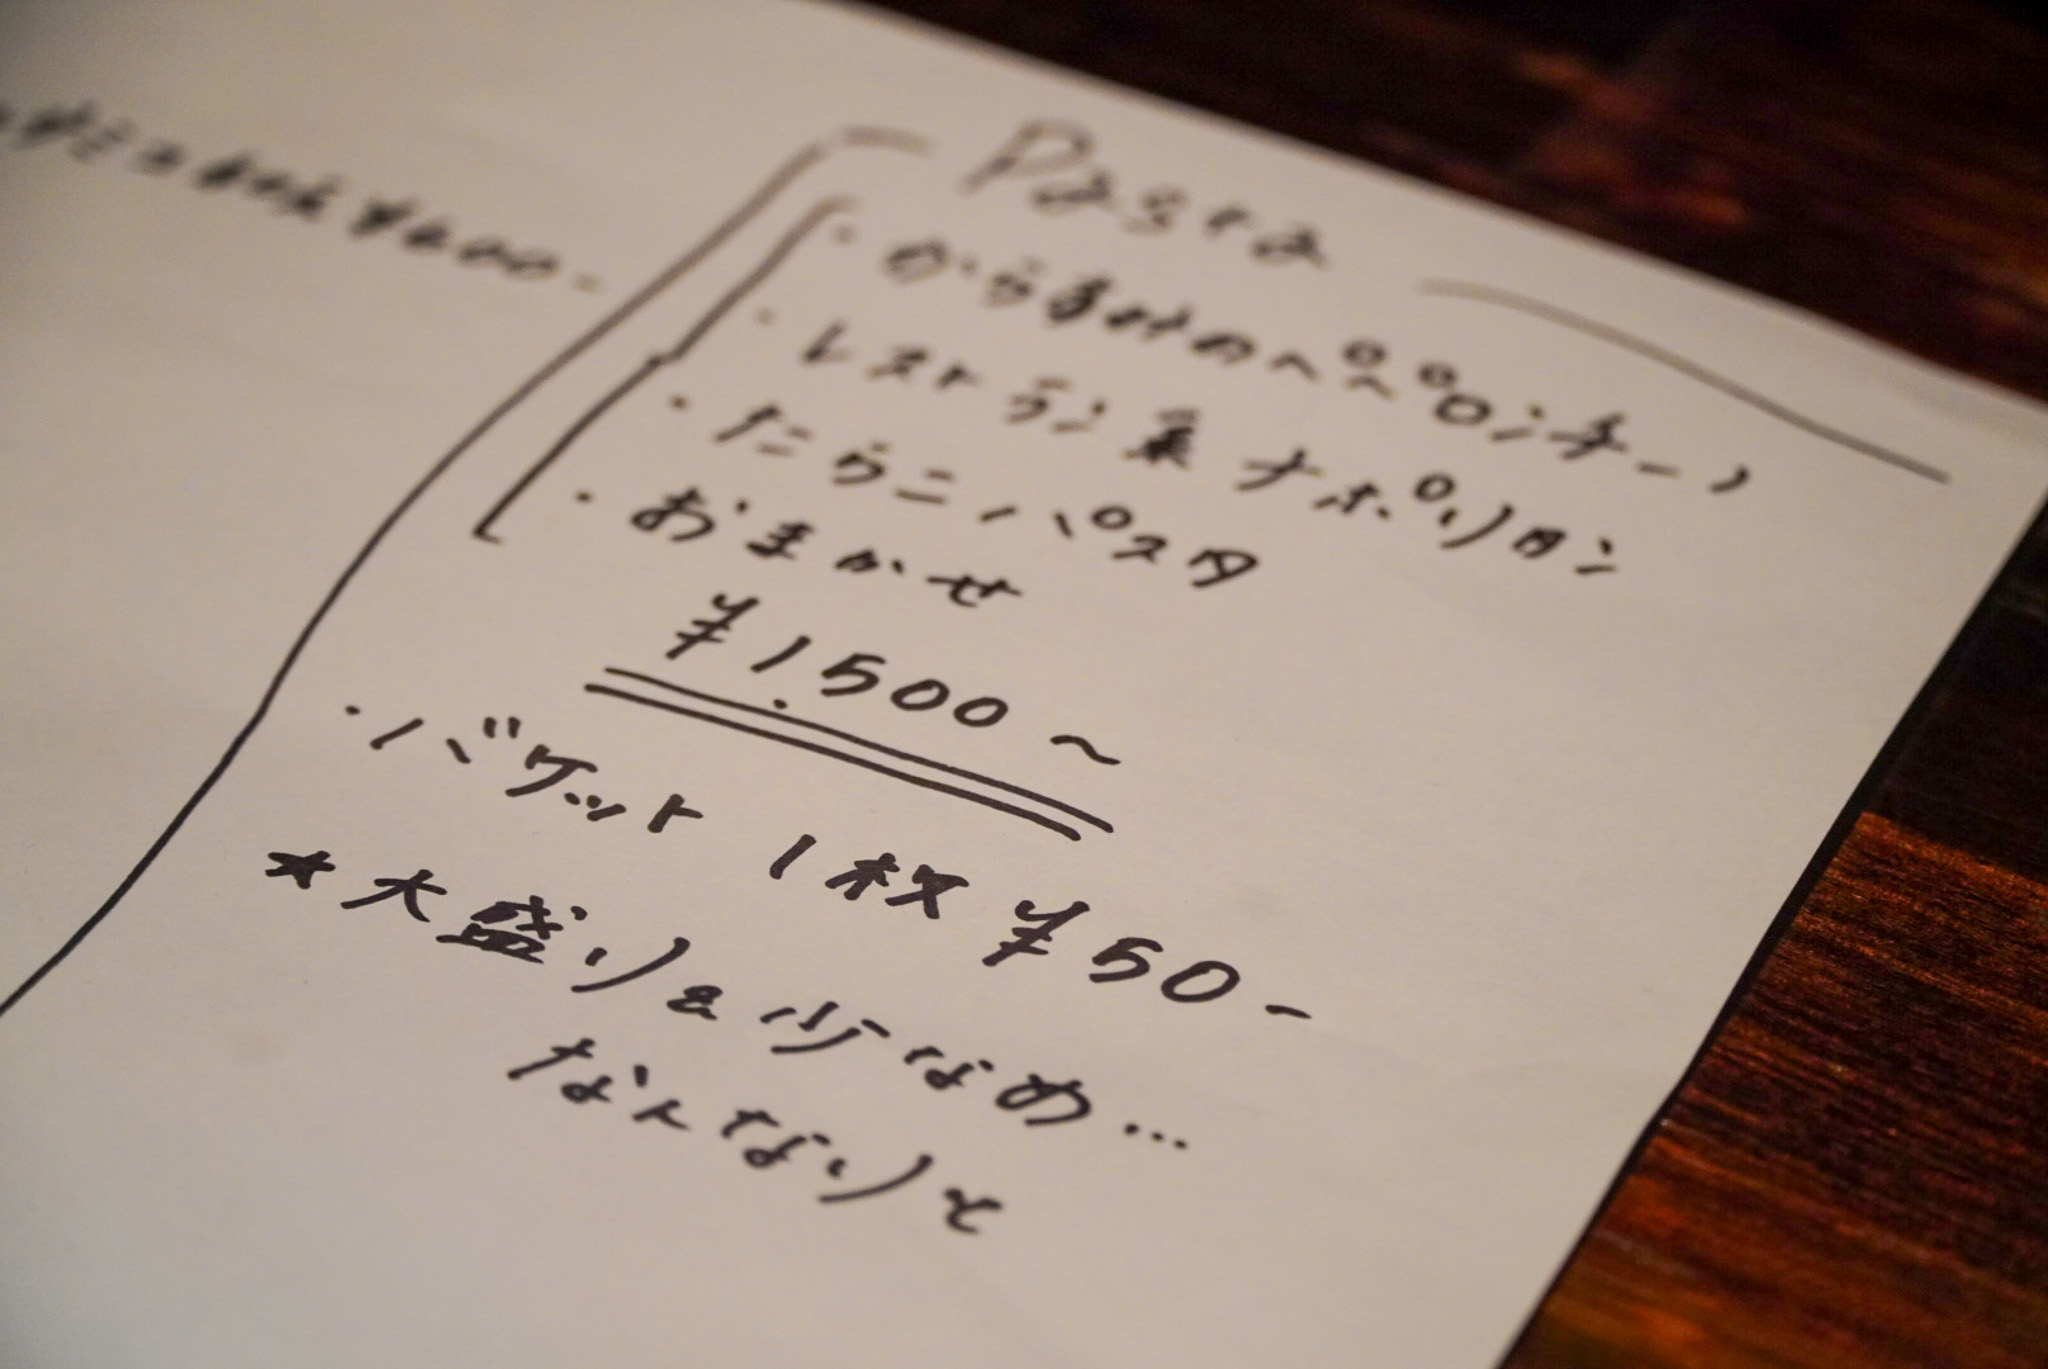 ¥600-
Pasta
・からすみのペペロンチーノ
・レストラン ナポリタン
・たらこパスタ
・おまかせ
¥1,500～
・バゲット 1枚 ¥50-
★大盛り&少なめ…
なんなりと